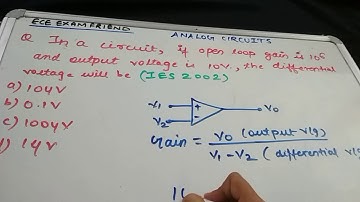 ECE EXAM FRIEND
ANALOG CIRCUITS
Q. In a circuit, if open loop gain is 10⁶
and output voltage is 10V, the differential
voltage will be (IES 2002)
a) 10μV
b) 0.1V
c) 100μV
d) 1μV
V1
V2
+
-
Vo
Gain = Vo (output vtg)
V1 - V2 (differential vtg)